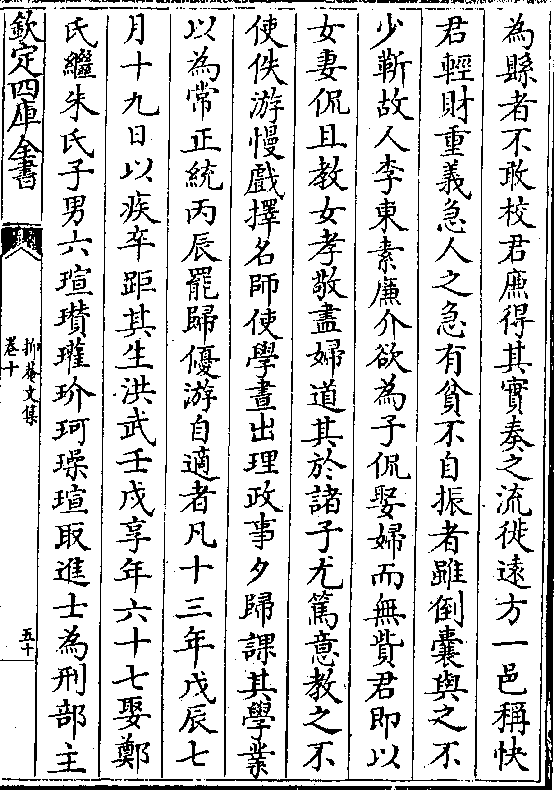 為縣者不敢校君廉得其實奏之流徙遠方一邑稱快
君輕財重義急人之急有貧不自振者雖倒囊與之不
少靳故人李東素廉介欲為子侃娶婦而無貲君即以
女妻侃且教女孝敬盡婦道其於諸子尤篤意教之不
使佚游慢戲擇名師使學晝出理政事夕歸課其學業
以為常正統丙辰罷歸優游自適者凡十三年戊辰七
月十九日以疾卒距其生洪武壬戌享年六十七娶鄭
氏繼朱氏子男六瑄瓚瓘玠珂璪瑄取進士為刑部主
欽定四庫全書
抑菴文集
卷十
五十